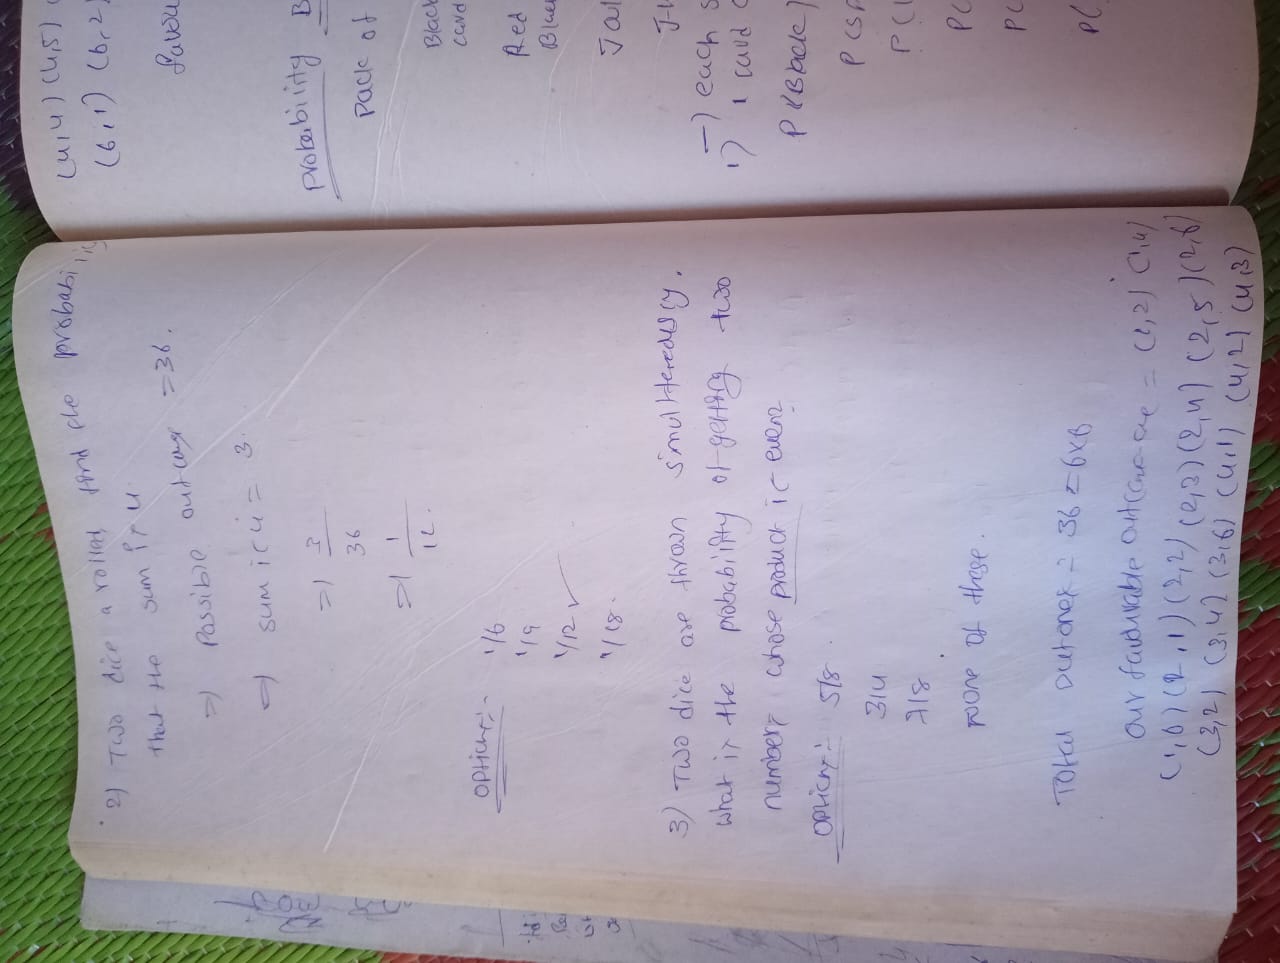 2) Two dice a rolled, find the probability
that the sum is 4.
=) Possible outcome =36.
=) sum is 4 = 3.
=) 3/36
=) 1/12.
Options:-
1/6
1/9
1/12 ✓
1/18.
3) Two dice are thrown simultenedsly.
what is the probability of getting two
numbers whose product is even?
Options:- 5/8.
3/4
7/8
none of these.
Total outones = 36 = 6x6
our favourable outcome are = (1,2) (1,4)
(1,6) (2,1) (2,2) (2,3) (2,4) (2,5) (2,6)
(3,2) (3,4) (3,6) (4,1) (4,2) (4,3)
(4,4) (4,5)
(6,1) (6,2)
Favou
Probability B
Pack of
Black
card
Red
Blue
J
=) each s
1) 1 card
P(Black)
P(
P(
P(
P(